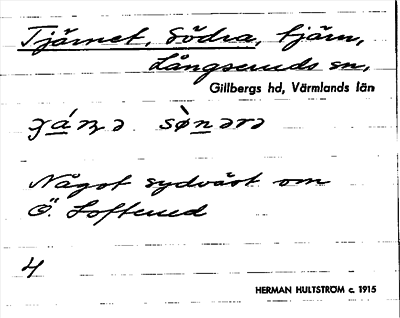 Tjärnet, Södra, tjärn,
Långseruds sn,
Gillbergs hd, Värmlands län
Något sydväst om
Ö. Lofterud
4
HERMAN HULTSTRÖM c. 1915